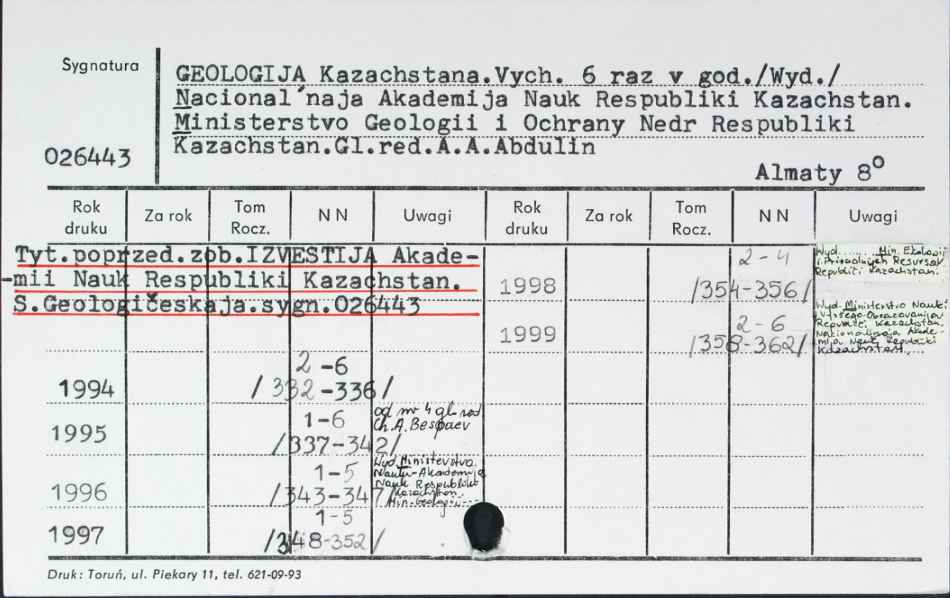 Sygnatura
GEOLOGIJA Kazachstana.Vych. 6 raz v god./Wyd./
Nacional´naja Akademija Nauk Respubliki Kazachstan.
Ministerstvo Geologii i Ochrany Nedr Respubliki
Kazachstan.Gl.red.A.A.Abdulin
026443
Almaty 8°
Rok druku Za rok Tom Rocz. N N Uwagi Rok druku Za rok Tom Rocz. N N Uwagi
Tyt.poprzed.zob.IZVESTIJA Akade-
-mii Nauk Respubliki Kazachstan.
S.Geologičeskaja.sygn.026443
1994 2-6
/332-336/
1995 1-6
/337-342/
od nr 4 gl. red.
Ch.A. Bespaev
1996 1-5
/343-347/
Wyd. Ministerstvo
Nauki-Akademija
Nauk Respubliki
Kazachstan.
Min. Geologii
1997 1-5
/348-352/
1998 2-4
/354-356/
Wyd. Min. Ekologii
i Prirodnych Resursov
Respubliki Kazachstan.
1999 2-6
/358-362/
Wyd. Ministerstvo Nauki
i Vysšego Obrazovanija
Respubliki Kazachstan.
Nacionalnaja Akade-
mija Nauk Respubliki
Kazachstan.
Druk: Toruń, ul. Piekary 11, tel. 621-09-93